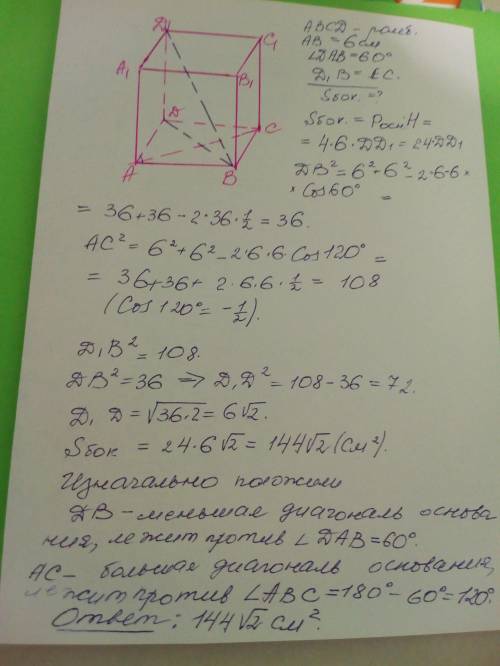 D₁
C₁
A₁
B₁
D
C
A
B
ABCD – ромб.
AB = 6 см
∠DAB = 60°
D₁B = AC.
Sбок. = ?
Sбок. = Pосн H =
= 4·6·DD₁ = 24·DD₁
DB² = 6² + 6² – 2·6·6×
× Cos60° =
= 36 + 36 – 2·36·1/2 = 36.
AC² = 6² + 6² – 2·6·6·Cos120° =
= 36 + 36 + 2·6·6·1/2 = 108
(Cos120° = –1/2).
D₁B² = 108.
DB² = 36 ⇒ D₁D² = 108 – 36 = 72.
D₁D = √36·2 = 6√2.
Sбок = 24·6√2 = 144√2 (см²).
Изначально положим
DB – меньшая диагональ основа
ния, лежит против ∠DAB = 60°.
AC – большая диагональ основания,
лежит против ∠ABC = 180° – 60° = 120°
Ответ: 144√2 см².